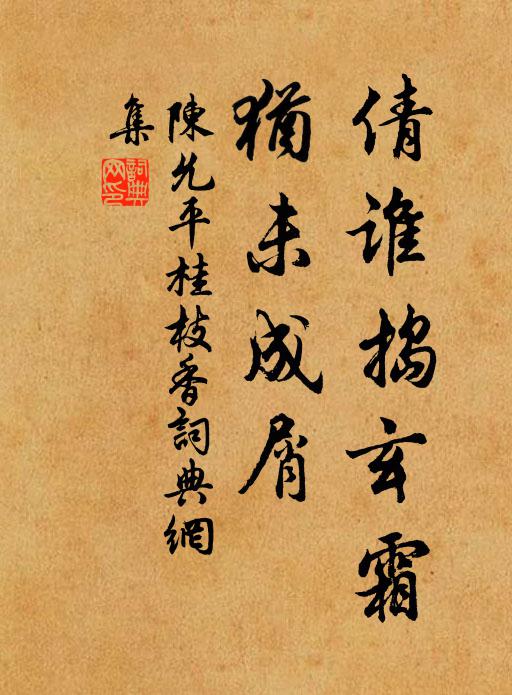 倩誰搗玄霜
猶未成屑
陳允平桂枝香詞典網
集
詞典網印